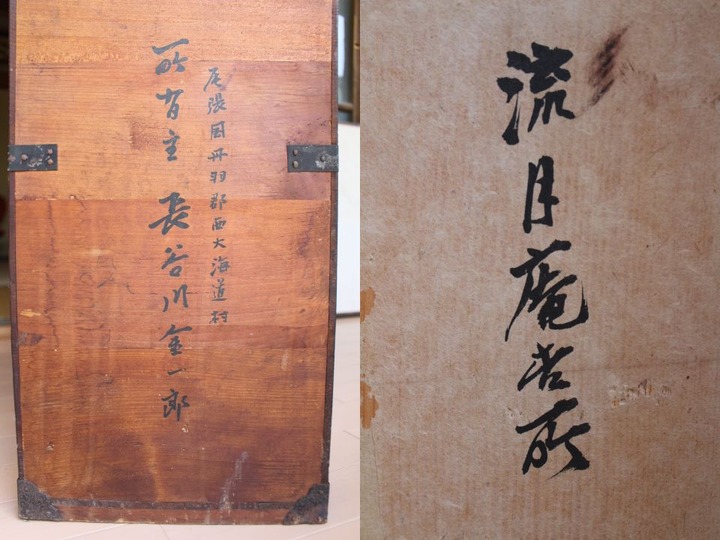 尾張国丹羽郡西大海道村
所有主 長谷川金一郎
流月庵
所